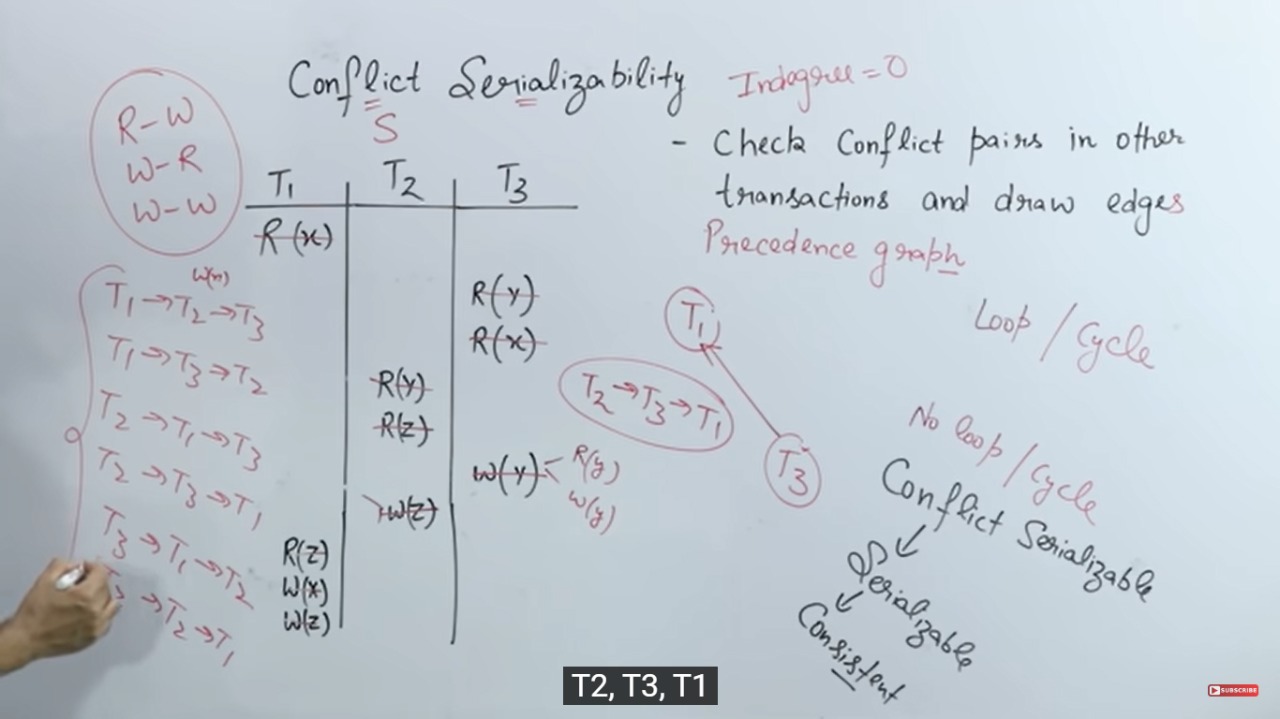 Conflict Serializability
Indegree = 0
S
R-W
W-R
W-W
- Check Conflict pairs in other
transactions and draw edges
Precedence graph
T1 T2 T3
R(x)
R(y)
R(x)
R(y)
R(z)
W(y)
R(y)
W(y)
W(z)
R(z)
W(x)
W(z)
T1 → T2 → T3
T1 → T3 → T2
T2 → T1 → T3
T2 → T3 → T1
T3 → T1 → T2
→ T2 → T1
T1
T2 → T3 → T1
T3
Loop / Cycle
No loop / Cycle
Conflict Serializable
Serializable
Consistent
T2, T3, T1
SUBSCRIBE